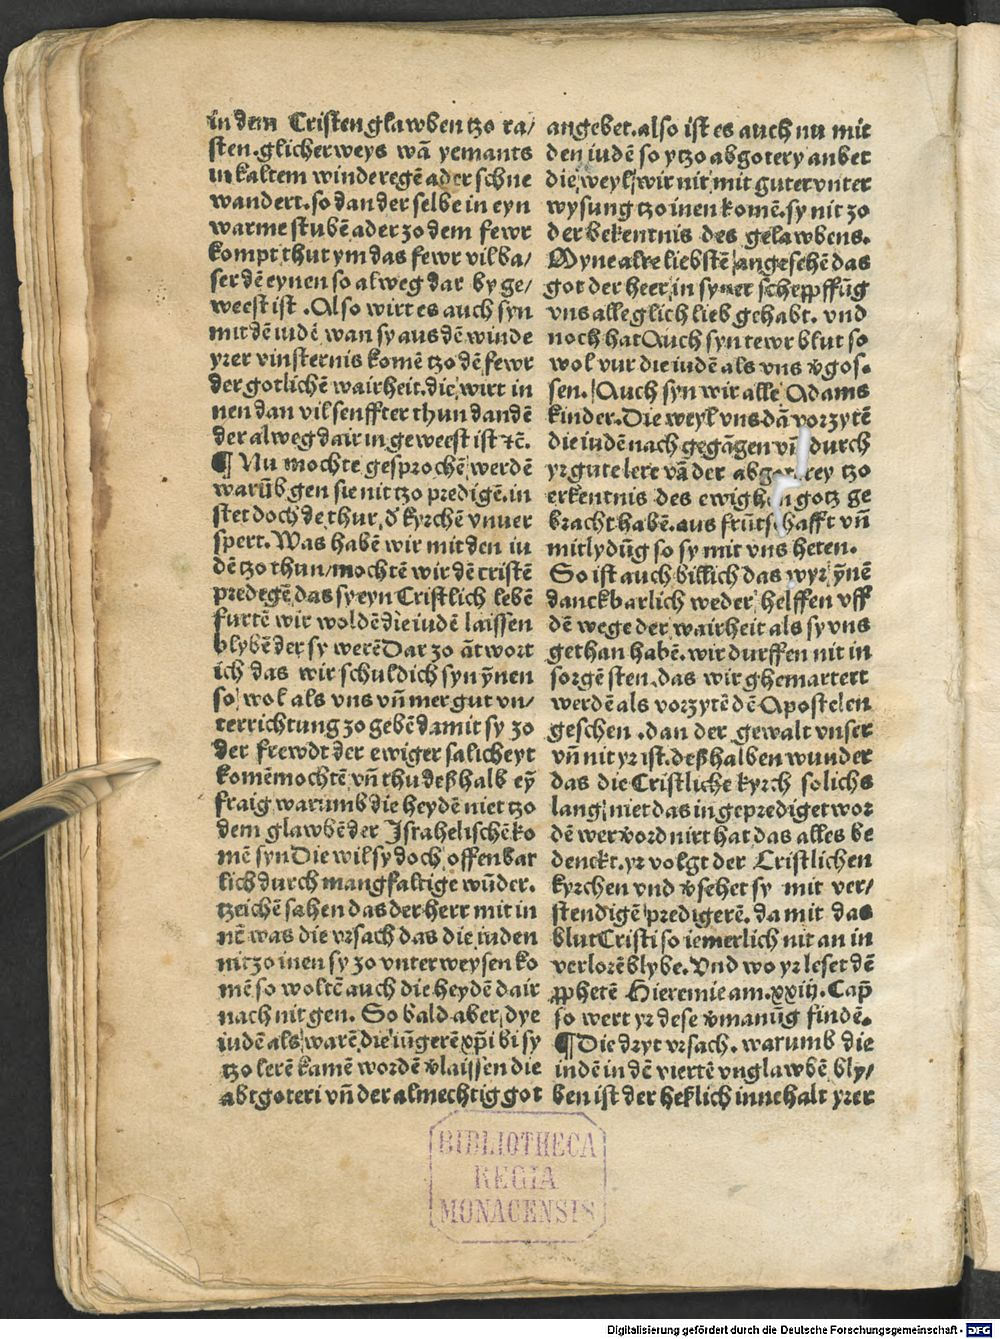 in dem Cristen glawben tzo ra/
sten. glicherweys wā yemants
in kaltem winde regē ader schne
wandert. so dan der selbe in eyn
warme stubē ader zo dem fewr
kompt thut ym das fewr vil ba/
ser dē eynen so alweg dar by ge/
weest ist. Also wirt es auch syn
mit dē iudē wan sy aus dē winde
yrer vinsternis komē tzo dē fewr
der gotlichē wairheit. die wirt in
nen dan vil senffter thun dan dē
der alweg dair in geweest ist ⁊c̄.
¶ Nu mochte gesprochē werdē
warūb gen sie nit tzo predigē. in
stet doch de thur d' kyrchē vnuer
spert. Was habē wir mit den iu
dē tzo thun/ mochtē wir dē cristē
predegē das sy eyn Cristlich lebē
furtē wir woldē die iudē laissen
blybē der sy werē Dar zo ātwort
ich das wir schuldich syn ȳnen
so wol als vns vn̄ mer gut vn/
terrichtung zo gebē damit sy zo
der frewdt der ewiger salicheyt
komē mochtē vn̄ thu deßhalb eȳ
fraig warumb die heydē niet tzo
dem glawbē der Israhelischē ko
mē syn Die wil sy doch offenbar
lich durch mangfaltige wūder.
tzeichē sahen das der herr mit in
nē was die vrsach das die iuden
nit zo inen sy zo vnterweysen ko
mē so woltē auch die heydē dair
nach nit gen. So bald aber dye
iudē als warē die iūgerē xp̄i bi sy
tzo lerē kamē wordē v̄laissen die
abtgoteri vn̄ der almechtig got
angebet. also ist es auch nu mit
den iudē so ytzo abgotery anbet
die weyl wir nit mit guter vnter
wysung tzo inen komē. sy nit zo
der bekentnis des gelawbens.
Myne alre liebstē angesehē das
got der heer in syner scheppffūg
vns alle glich lieb gehabt. vnd
noch hat Auch syn tewr blut so
wol vur die iudē als vns v̄gos.
sen. Auch syn wir alle Adams
kinder. Die weyl vns dā vorzytē
die iudē nach gegāgen vn̄ durch
yr gute lere vā der abgotterey tzo
erkentnis des ewighen gotz ge
bracht habē. aus frūtschafft vn̄
mitlydūg so sy mit vns heten.
So ist auch billich das wyr ȳnē
danckbarlich weder helffen vff
dē wege der wairheit als sy vns
gethan habē. wir durffen nit in
sorgē sten. das wir ghemartert
werdē als vorzytē dē Apostelen
geschen. dan der gewalt vnser
vn̄ nit yr ist. deßhalben wunder
das die Cristliche kyrch solichs
lang niet das in geprediget wor
dē wer v̄ordnirt hat das alles be
denckt. yr volgt der Cristlichen
kyrchen vnd v̄sehet sy mit ver/
stendigē predigerē. da mit das
blut Cristi so iemerlich nit an in
verlorē blybe. Vnd wo yr leset dē
ꝓphetē Hieremie am. xxiij. Cap̄
so wert yr dese v̄manūg findē.
¶ Die dryt vrsach. warumb die
iudē in dē viertē vnglawbē bly/
ben ist der heklich innehalt yrer
BIBLIOTHECA
REGIA
MONACENSIS
Digitalisierung gefördert durch die Deutsche Forschungsgemeinschaft - DFG